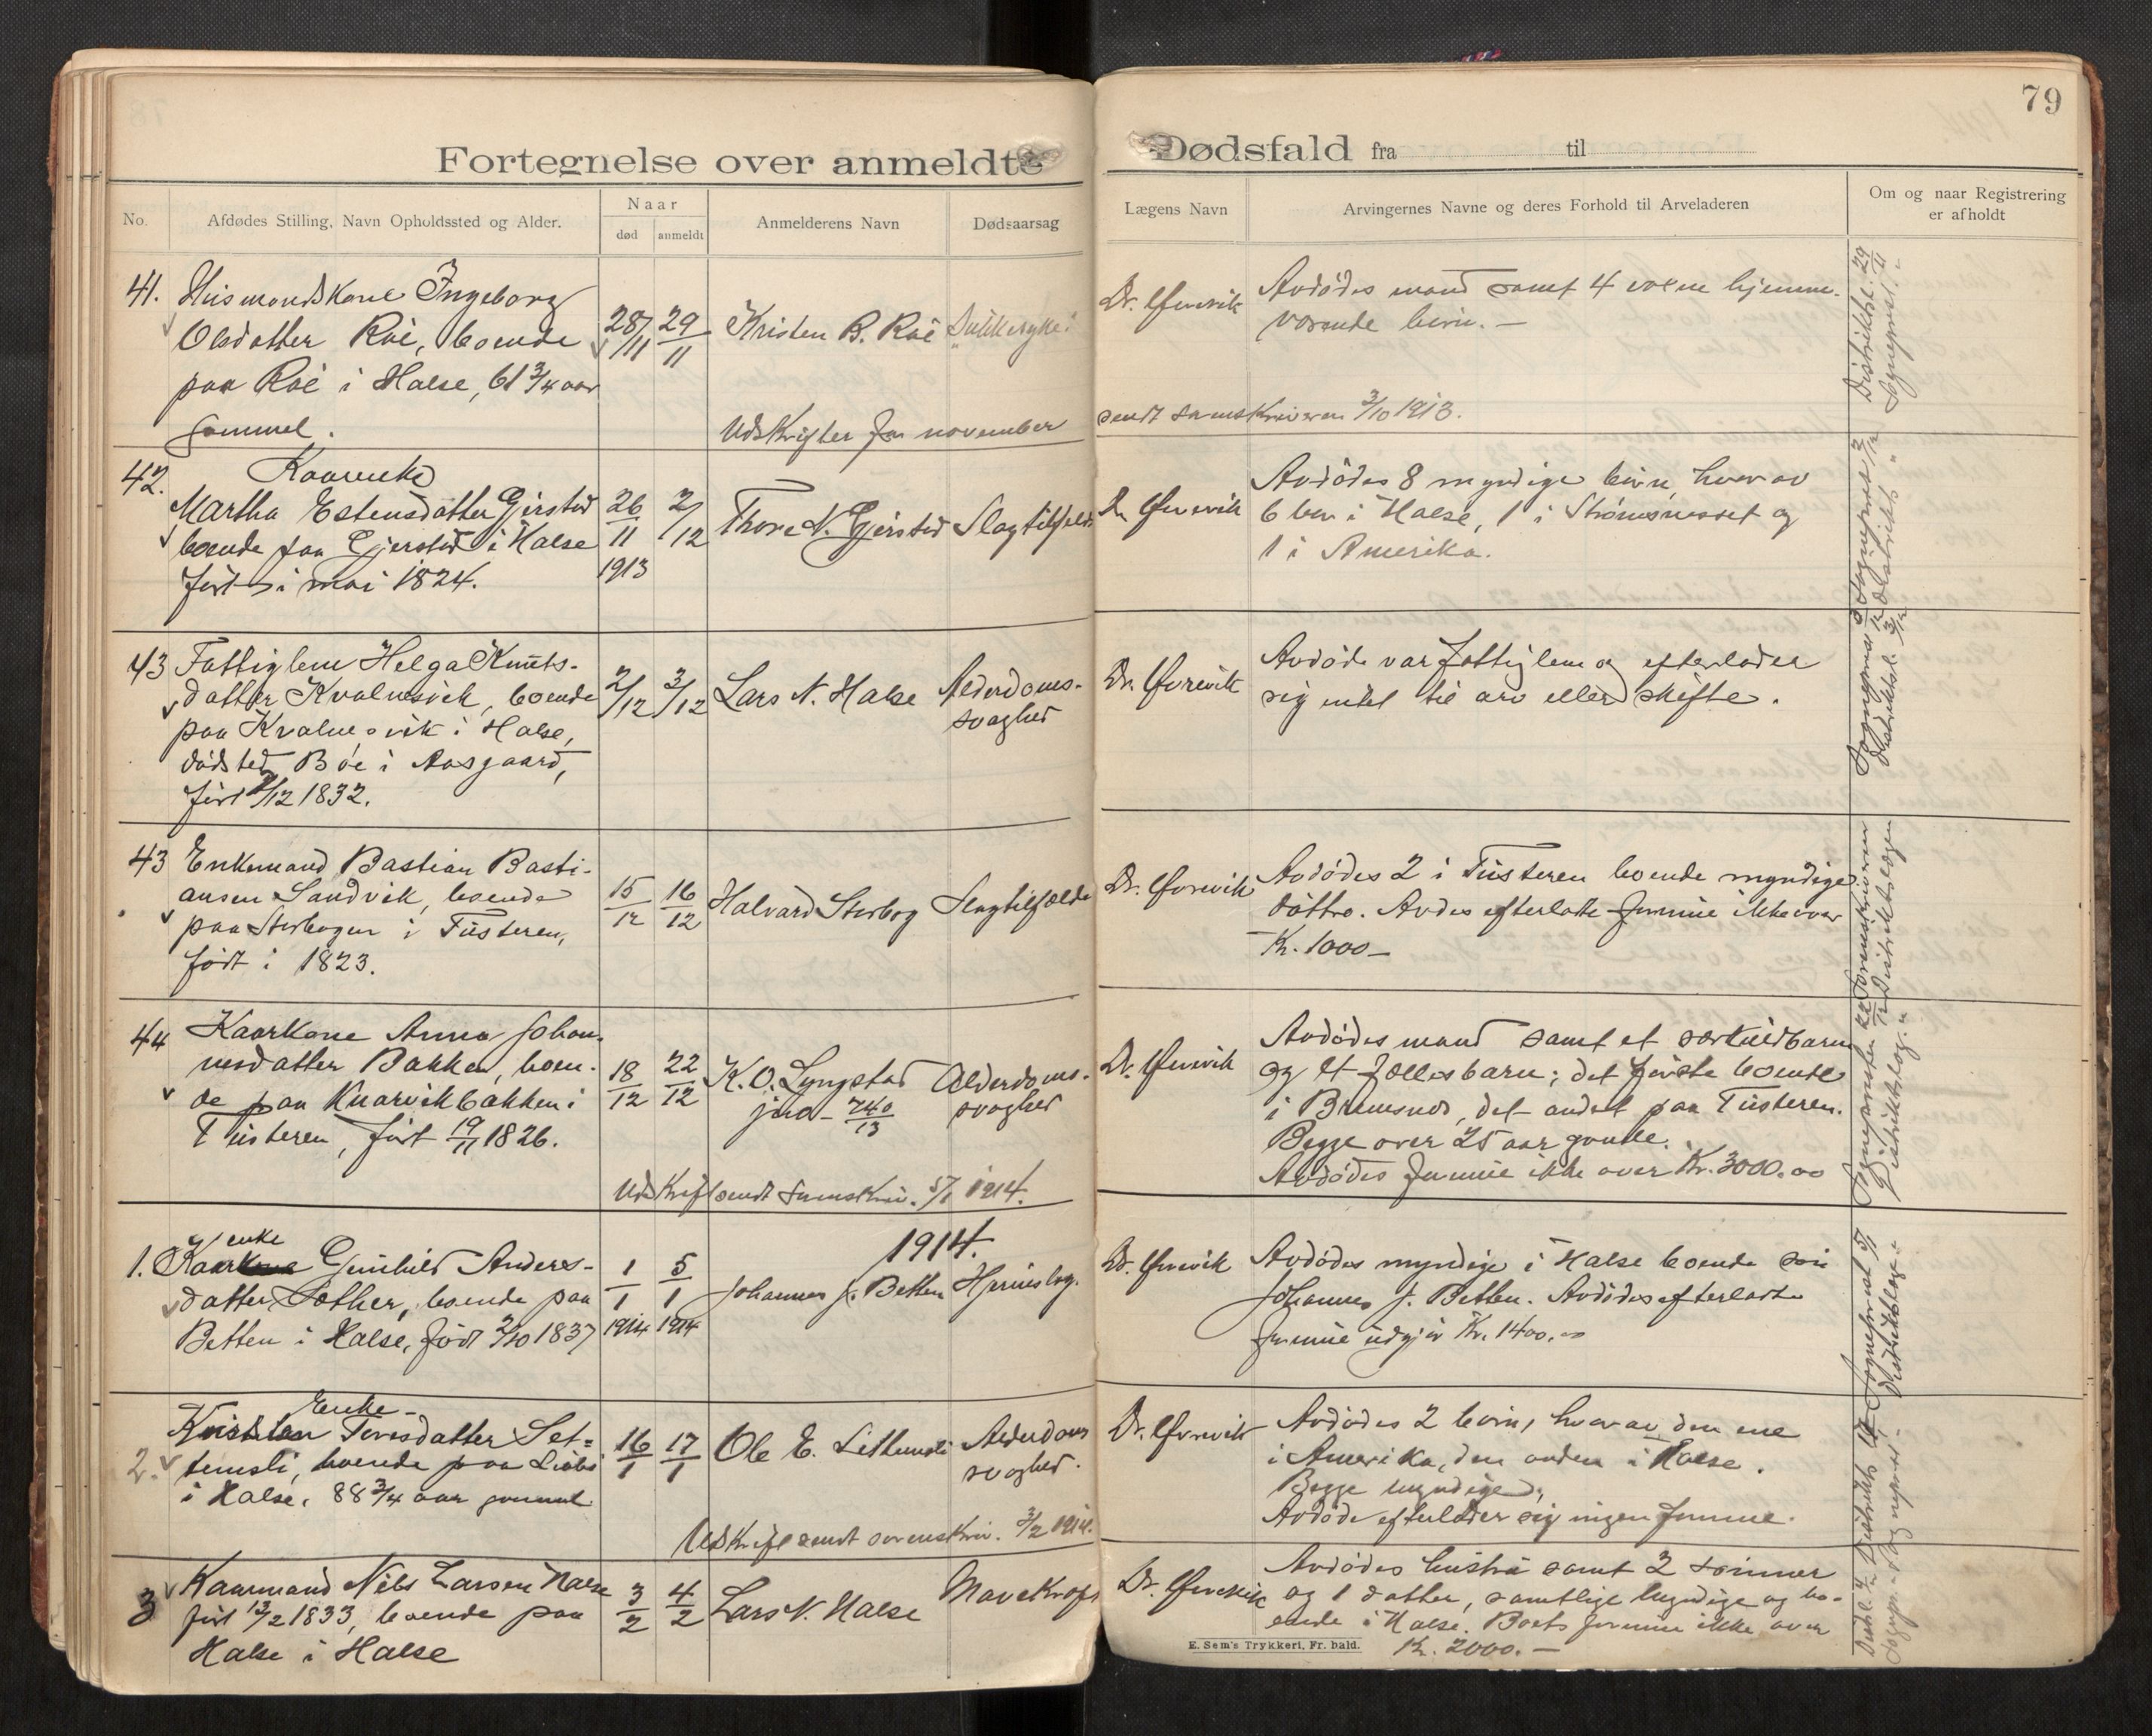 79
Fortegnelse over anmeldte Dødsfald fra til
No.
Afdødes Stilling, Navn Opholdssted og Alder.
Naar
død
anmeldt
Anmelderens Navn
Dødsaarsag
Lægens Navn
Arvingernes Navne og deres Forhold til Arveladeren
Om og naar Registrering
er afholdt
41. Husmandskone Ingeborg
Olsdatter Roë, boende
paa Roë i Halse, 61 3/4 aar
gammel.
28/11 29/11
Kristen B. Roë
Dr. Øvrevik
Avdødes mand samt 4 voxne hjemme-
værende børn. —
Distriktsl. 29/11
Sogneprest. "
Udskrifter for november
sendt sorenskriveren 3/10 1913.
42. Kaarenke
Martha Estensdatter Gjersted
boende paa Gjersted i Halse
født i mai 1824.
26/11 2/12
1913
Thore N. Gjersted
Slagtilfelde
Dr Øvrevik
Avdødes 8 myndige børn, hvorav
6 bor i Halse, 1 i Strømsnesset og
1 i Amerika.
43 Fattiglem Helga Knuts-
datter Kvalnesvik, boende
paa Kvalnesvik i Halse,
dødsted Böe i Aasgaard,
født /12 1832.
2/12 3/12
Lars N. Halse
Alderdoms-
svaghed
Dr. Øvrevik
Avdøde var fattiglem og efterlader
sig intet til arv eller skifte.
Sognepres 3/12
Distriktsl. 3/12
43 Enkemand Bastian Basti-
ansen Sandvik, boende
paa Storbogen i Tusteren,
født i 1823.
15/12 16/12
Halvard Storbog
Slagtilfælde
Dr. Øvrevik
Avdødes 2 i Tusteren boende myndige
døttre. Avdes efterlatte formue ikke over
Kr. 1000 —
Sorenskriveren
Distriktslægen
44 Kaarkone Anna Johan-
nesdatter Bakken, boen-
de paa Knarvikbakken i
Tusteren, født 19/11 1826.
18/12 22/12
K. O. Lyngstad
jno- 740/13
Alderdoms-
svaghed
Dr. Øvrevik
Avdødes mand samt et særkuldbarn
og et fællesbarn; det første boende
i Bremsnes, det andet paa Tusteren.
Begge over 25 aar gamle.
Avdødes formue ikke over Kr. 3000.00
Sognepresten 22/12
Distriktslæg. "
Udskrift sendt sorenskriv. 5/1 1914.
1914.
1. Kaarenke Gunhild Anders-
datter Sæther, boende paa
Betten i Halse, født 2/10 1837
1/1 5/1
1914 1914
Johannes J. Betten
Hjerneslag.
Dr. Øvrevik
Avdødes myndige i Halse boende søn
Johannes J. Betten. Avdødes efterladte
formue udgjør Kr. 1400.00
Sogneprest 5/1
Distriktslæge "
2. Enke-
Tøresdatter Set-
temsli, boende paa
i Halse, 88 3/4 aar gammel
16/1 17/1
Ole E. Settemsli
Alderdoms
svaghed.
Dr. Øvrevik
Avdødes 2 børn, hvorav den ene
i Amerika, den anden i Halse.
Begge myndige.
Avdøde efterlader sig ingen formue.
Udskrift sendt sorenskriv. 3/2 1914.
3 Kaarmand Nils Larsen Halse
født 13/2 1833, boende paa
Halse i Halse
3/2 4/2
Lars N. Halse
Mavekræft
Dr. Øvrevik
Avdødes hustru samt 2 sønner
og 1 datter, samtlige myndige og bo-
ende i Halse. Boets formue ikke over
Kr. 2000. —
E. Sem's Trykkeri, Fr. hald.